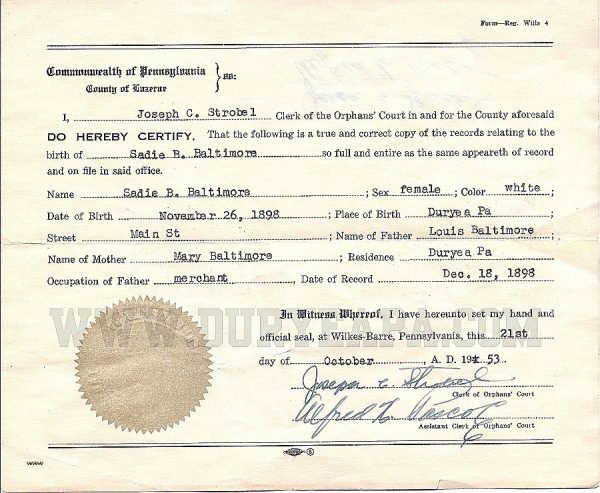 Form—Reg. Wills 4
Commonwealth of Pennsylvania
County of Luzerne } ss:
I, Joseph C. Strobel Clerk of the Orphans' Court in and for the County aforesaid
DO HEREBY CERTIFY, That the following is a true and correct copy of the records relating to the
birth of Sadie B. Baltimore so full and entire as the same appeareth of record
and on file in said office.
Name Sadie B. Baltimore ; Sex female ; Color white ;
Date of Birth November 26, 1898 ; Place of Birth Duryea Pa ;
Street Main St ; Name of Father Louis Baltimore ;
Name of Mother Mary Baltimore ; Residence Duryea Pa
Occupation of Father merchant , Date of Record Dec. 18, 1898
In Witness Whereof, I have hereunto set my hand and
official seal, at Wilkes-Barre, Pennsylvania, this 21st
WWW.DURYEAPA.COM
day of October , A. D. 1953.
Joseph C. Strobel
Clerk of Orphans' Court
Alfred
Assistant Clerk of Orphans' Court
www